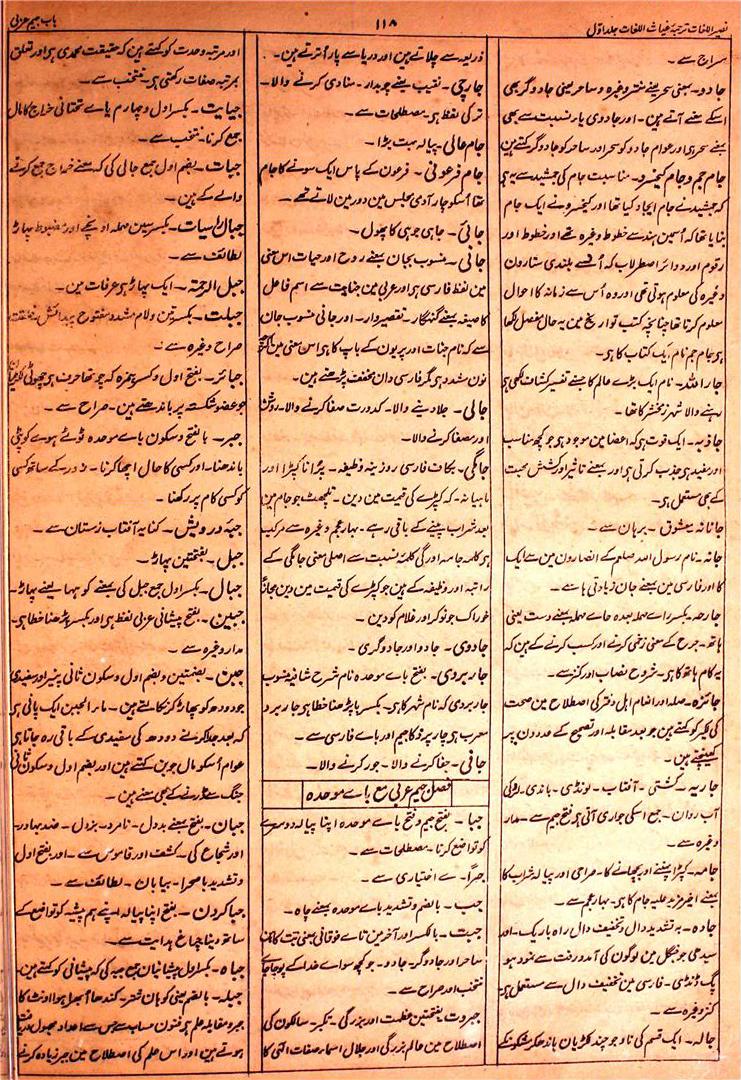 نصیر اللغات ترجمۂ غیاث اللغات جلد اول
۱۱۸
باب جیم عربی
سراج سے۔
جادو۔ بمعنی سحر یعنے منتر وغیرہ و ساحر یعنی جادوگر بھی
اسکے معنے آتے ہین۔ اور جادوی یاے نسبت سے بھی
بمعنے سحر ہی اور عوام جادو کو سحر اور ساحر کو جادوگر کہتے ہین
جام جم و جام کیخسرو۔ مناسبت جام کی جمشید سے یہ ہی
کہ جمشید نے جام ایجاد کیا تھا اور کیخسرو نے ایک جام
بنایا تھا کہ اُسمین ہندسے خطوط وغیرہ تھے اور خطوط اور
رقوم اور دوائر اصطرلاب کہ اُنسے بلندی ستارون
وغیرہ کی معلوم ہوتی تھی اور وہ اُس سے زمانہ کا احوال
معلوم کرتا تھا چنانچہ کتب تواریخ مین یہ حال مفصل لکھا
ہی جام جم نام ایک کتاب کا ہی۔
جار اللہ۔ نام ایک بڑے عالم کا جسنے تفسیر کشاف لکھی ہی
رہنے والا شہر زمخشر کا تھا۔
جاذبہ۔ ایک قوت ہی کہ اعضا مین موجود ہی جو کچھ مناسب
اور مفید ہی جذب کرتی ہی اور بمعنے تاثیر اور کشش محبت
کے بھی مستعمل ہی۔
جانانہ۔ معشوق۔ برہان سے۔
جانہ۔ نام رسول اللہ صلعم کے انصارون مین سے ایک
کا اور فارسی مین بمعنے جان زیادتی ہا سے۔
جارحہ۔ بکسر راے مہملہ بعدہ حاے مہملہ بمعنے دست یعنی
ہاتھ۔ جرح کے معنی زخمی کرنے اور کسب کرنے کے ہین کہ
یہ کام ہاتھ کا ہی۔ شروح نصاب اور کنز سے۔
جائزہ۔ صلہ اور انعام اہل دفتر کی اصطلاح مین صحت
کی لکیر کو کہتے ہین جو بعد مقابلہ اور تصحیح کے عددون پر
کھینچتے ہین۔
جاریہ۔ کشتی۔ آفتاب۔ لونڈی۔ باندی۔ لڑکی
آب روان۔ جمع اسکی جواری آتی ہی بفتح جیم سے۔ مدار
وغیرہ سے۔
جامہ۔ کپڑا پہننے اور بچھانے کا۔ صراحی اور پیالہ شراب کا
بمعنے اخیر مزید علیہ جام کا ہی۔ بہار عجم سے۔
جادہ۔ بہ تشدید دال و تخفیف دال راہ باریک۔ اور
سیدھی جو جنگل مین لوگون کی آمد و رفت سے نمود ہو
پگ ڈنڈی۔ فارسی مین تخفیف دال سے مستعمل ہی
کنز وغیرہ سے۔
جالہ۔ ایک قسم کی ناو جو چند لکڑیان باندھکر مشکونکے
ذریعہ سے چلاتے ہین اور دریا سے پار اُترتے ہین۔
جارچی۔ نقیب یعنے چوبدار۔ منادی کرنے والا۔
ترکی لفظ ہی۔ مصطلحات سے۔
جام حالی۔ پیالہ بہت بڑا۔
جام فرعونی۔ فرعون کے پاس ایک سونے کا جام
تھا اُسکو چار آدمی مجلس مین دور مین لاتے تھے۔
جائی۔ جاہی جوہی کا پھول۔
جانی۔ منسوب بجان بمعنے روح اور حیات اس معنی
مین لفظ فارسی ہی اور عربی مین جنایت سے اسم فاعل
کا صیغہ بمعنے گنہگار۔ تقصیروار۔ اور جانی منسوب جان
سے کہ نام جنات اور پریون کے باپ کا ہی اس معنی مین اگرچہ
نون مشدد ہی مگر فارسی دان مخفف پڑھتے ہین۔
جالی۔ جلا دینے والا۔ کدورت صفا کرنے والا۔ روشن
اور مصفا کرنے والا۔
جامگی۔ بکاف فارسی روزینہ وظیفہ۔ پرانا کپڑا اور
ماہیانہ۔ کہ کپڑے کی قیمت مین دین۔ تلچھٹ جو جام مین
بعد شراب پینے کے باقی رہے۔ بہار عجم وغیرہ سے مرکب
ہی کلمہ جامہ اور گی کلمۂ نسبت سے اصلی معنی جامگی کے
راتبہ اور وظیفہ کے ہین جو کپڑے کی قیمت مین دین مجازًا
خوراک جو نوکر اور غلام کو دین۔
جادوی۔ جادو اور جادوگری
جاربردی۔ بفتح باے موحدہ نام شرح شافیہ منسوب
جاربردی کہ نام شہر کا ہی۔ بکسر با پڑھنا خطا ہی جاربرد
معرب ہی چارپرد کا جیم اور باے فارسی سے۔
جافی۔ جفا کرنے والا۔ جور کرنے والا۔
فصل جیم عربی مع باے موحدہ
جبا۔ بفتح جیم و فتح باے موحدہ اپنا پیالہ دوسرے
کو تواضع کرنا۔ مصطلحات سے۔
جبراً۔ بے اختیاری سے۔
جب۔ بالضم و تشدید باے موحدہ بمعنے چاہ۔
جبت۔ بالکسر اور آخر مین تاے فوقانی بمعنی بت کاہن
ساحر اور جادوگر۔ جادو۔ جو کچھ سواے خدا کے پوجا جاے
منتخب اور صراح سے۔
جبروت۔ بفتحتین عظمت اور بزرگی۔ تکبر۔ سالکون کی
اصطلاح مین عالم بزرگی اور جلال اسما و صفات الٰہی کا
اور مرتبہ وحدت کو کہتے ہین کہ حقیقت محمدی ہی اور تعلق
بمرتبہ صفات رکھتی ہی۔ منتخب سے۔
جبایت۔ بکسر اول و چہارم یاے تحتانی خراج کا مال
جمع کرنا۔ منتخب سے۔
جبات۔ بضم اول جمع جابی کی کہ بمعنے خراج جمع کرنے
والے کے ہین۔
جبال راسیات۔ بکسر سین مہملہ اونچے اور مضبوط پہاڑ
لطائف سے۔
جبل الرحمۃ۔ ایک پہاڑ ہی عرفات مین۔
جبلت۔ بکسرتین و لام مشدد مفتوح پیدائش خلقت
صراح وغیرہ سے۔
جبائر۔ بفتح اول و کسر ہمزہ کہ چوتھا حرف ہی چھوٹی لکڑیان
جو عضو شکستہ پر باندھتے ہین۔ صراح سے۔
جبر۔ بالفتح و سکون باے موحدہ ٹوٹے ہوے کو پٹی
باندھنا۔ اور کسی کا حال اچھا کرنا۔ زور کے ساتھ کسی
کو کسی کام پر رکھنا۔
جبہ درویش۔ کنایہ آفتاب زمستان سے۔
جبل۔ بفتحتین پہاڑ۔
جبال۔ بکسر اول جمع جبل کی بمعنے کوہہا یعنے پہاڑ۔
جبین۔ بفتح پیشانی عربی لفظ ہی اور بکسر پڑھنا خطا ہی۔
مدار وغیرہ سے۔
جبن۔ بضمتین و بضم اول و سکون ثانی پنیر اور سفیدی
جو دودھ کو پھاڑ کر نکالتے ہین۔ ماء الجبن ایک پانی ہی
کہ بعد جدا کرنے دودھ کی سفیدی کے باقی رہ جاتا ہی
عوام اُسکو مال جوبن کہتے ہین اور بضم اول و سکون ثانی
جنگ سے ڈرنے کے بھی معنے ہین۔
جبان۔ بفتح بمعنے بددل۔ نامرد۔ بزدل۔ ضد بہادر۔
اور شجاع کی۔ کشف اور قاموس سے۔ اور بفتح اول
و تشدید با صحرا۔ بیابان۔ لطائف سے۔
جبا کردن۔ بفتح اپنا پیالہ اپنے ہم پیشہ کو تواضع کے
ساتھ دینا چراغ ہدایت سے۔
جباہ۔ بکسر اول پیشانیان جمع جبہہ کی کہ پیشانی کو کہتے ہین۔
جبلہ۔ بالضم یعنی کوہان شتر۔ کندھا اُبھرا ہوا اونٹ کا
جبر و مقابلہ علم ہی فنون حساب سے جس سے اعداد مجہول دریافت
ہوتے ہین اور اس علم کی اصطلاح مین جبر زیادہ کرنے